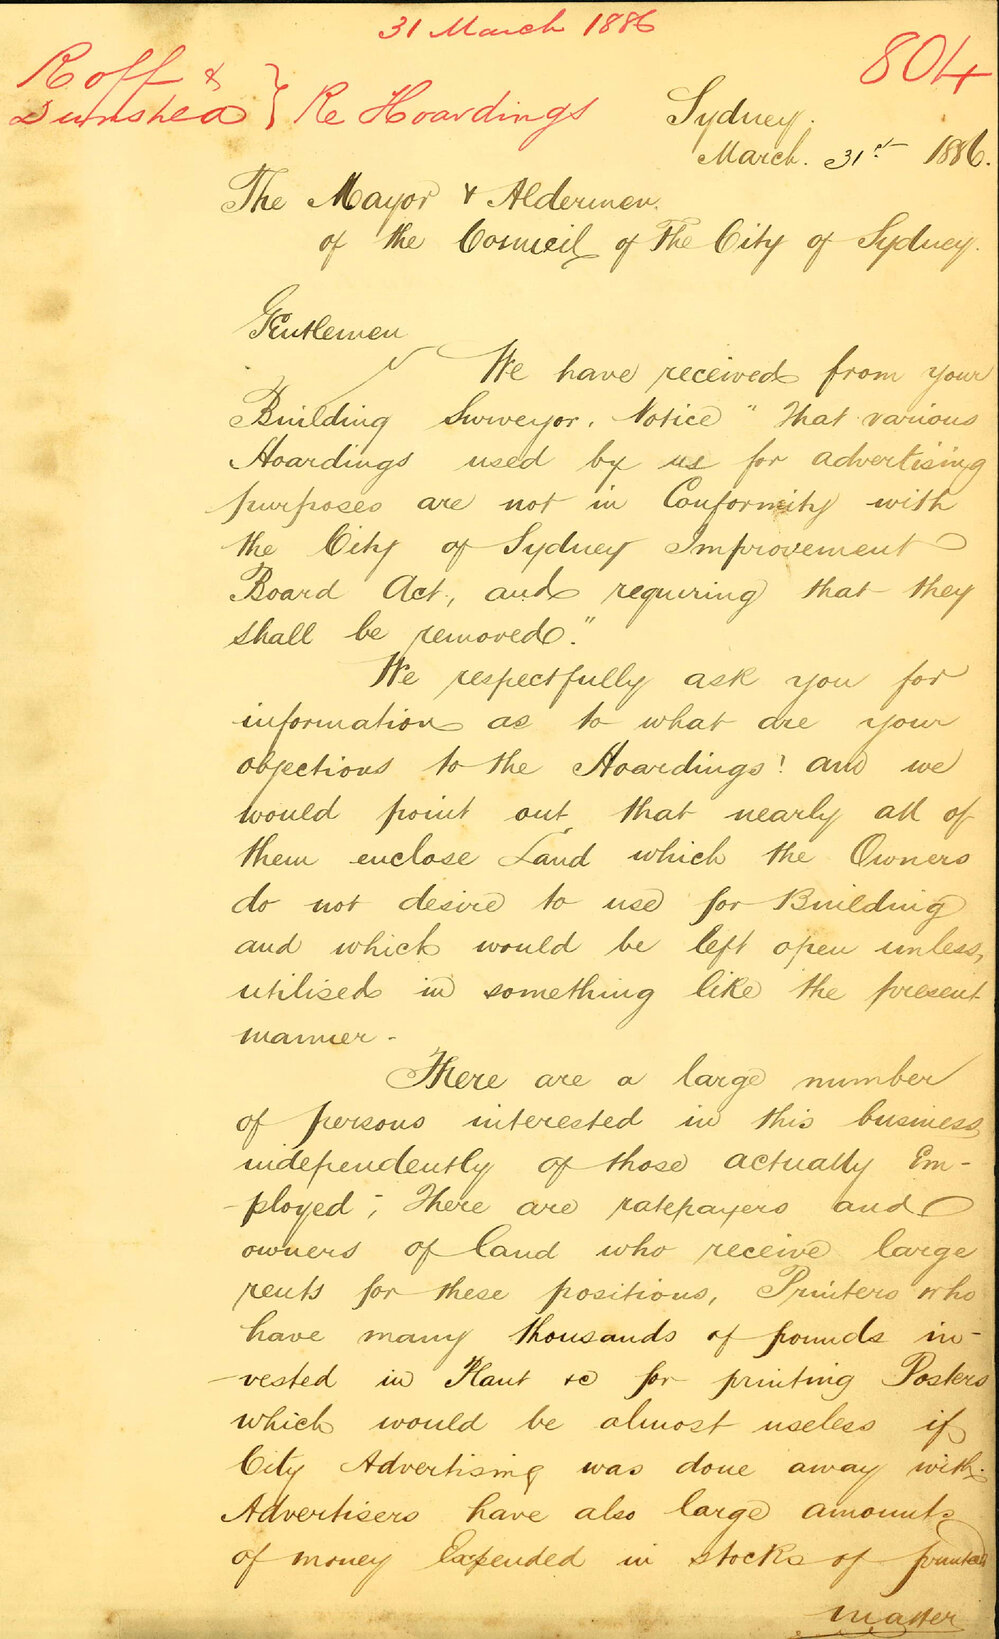 31 March 1886
804
Roff &
Dunshea } Re Hoardings
Sydney.
March. 31st 1886.
The Mayor & Aldermen.
of the Council of The City of Sydney.
Gentlemen
We have received from your
Building Surveyor. Notice "That various
Hoardings used by us for advertising
purposes are not in Conformity with
the City of Sydney Improvement
Board Act, and requiring that they
shall be removed."
We respectfully ask you for
information as to what are your
objections to the Hoardings! and we
would point out, that nearly all of
them enclose Land which the Owners
do not desire to use for Building
and which would be left open unless,
utilised in something like the present
manner -
There are a large number
of persons interested in this business
independently of those actually Em-
-ployed; There are ratepayers and
owners of land who receive large
rents for these positions, Printers who
have many thousands of pounds in-
-vested in Plant &c for printing Posters
which would be almost useless if
City Advertising was done away with.
Advertisers have also large amounts
of money Expended in stocks of printed
matter